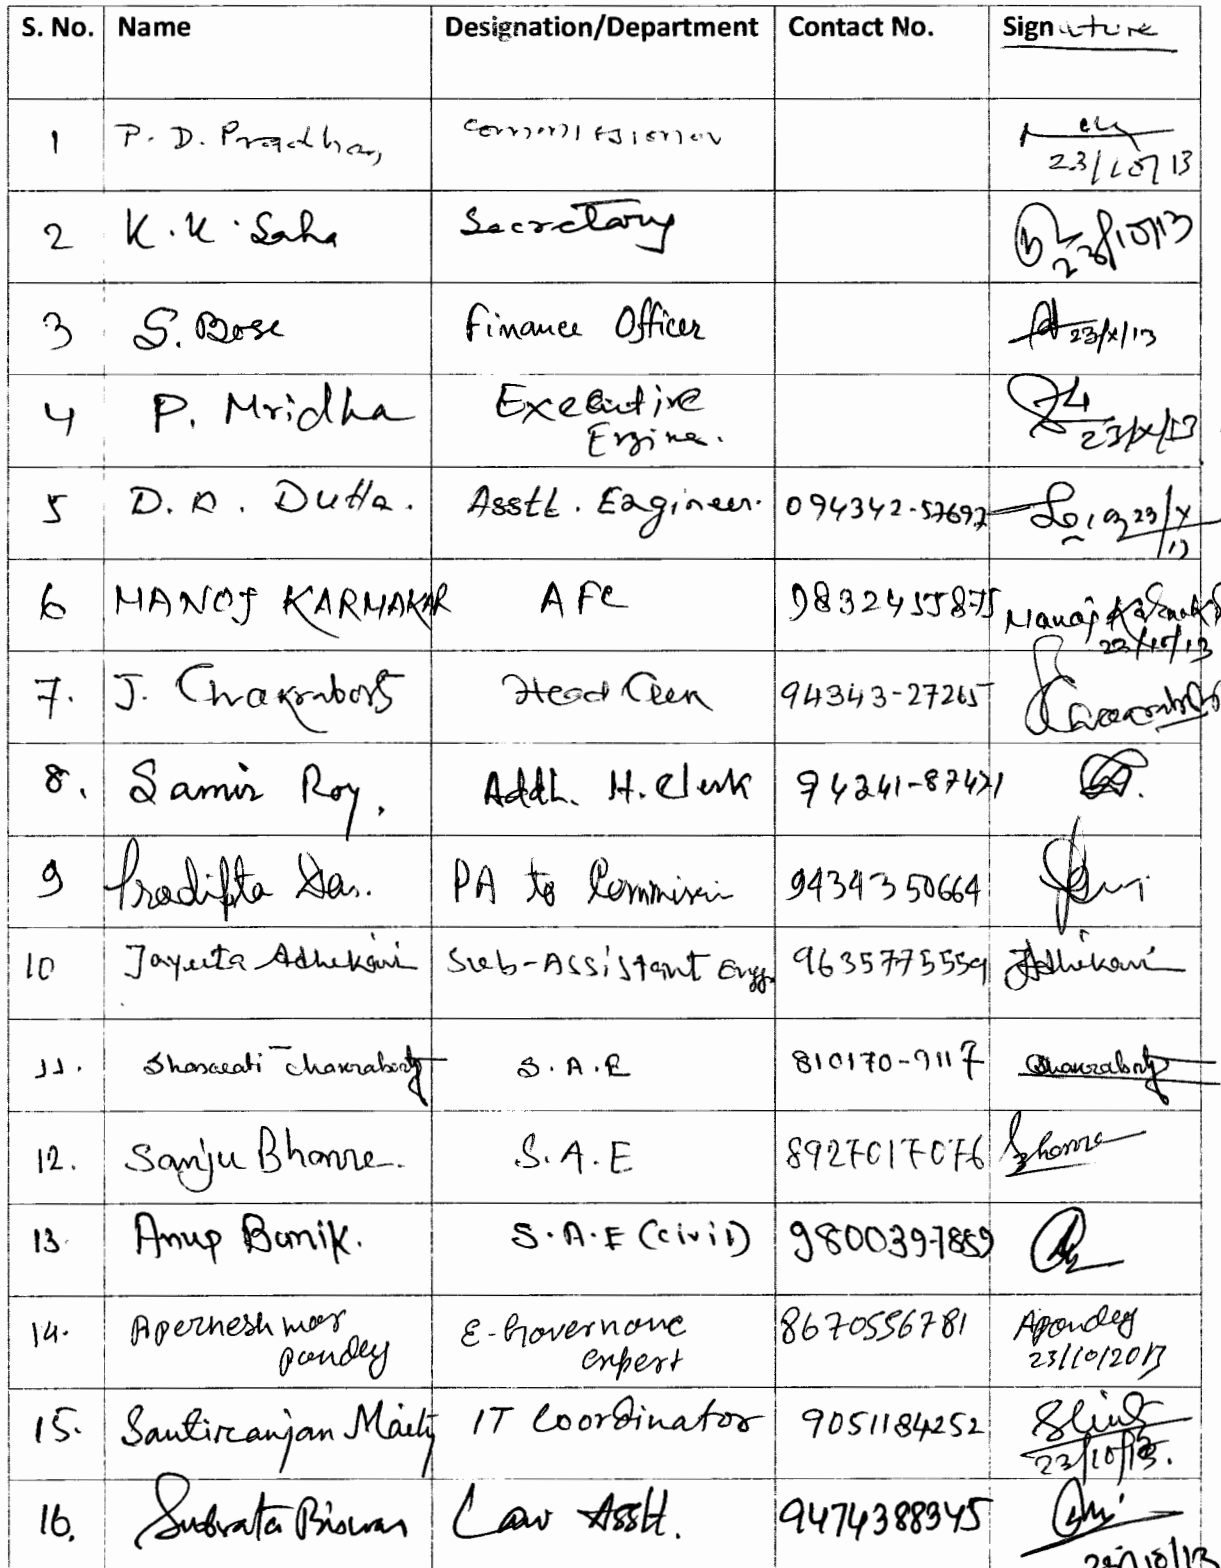 S. No. Name Designation/Department Contact No. Signature
1 P. D. Pradhan, Commissioner
23/10/13
2 K. K. Saha Secretary 23/10/13
3 S. Bose Finance Officer 23/X/13
4 P. Mridha Executive
Engine. 23/X/13
5 D. D. Dutta. Asstt. Engineer. 094342-57697 23/X
/13
6 MANOJ KARMAKAR AFC 9832455875 Manoj Karmakar
23/10/13
7. J. Chakraborty Head Clerk 94343-27265
8. Samir Roy, Addl. H. Clerk 94241-87421
9 Pradipta Das. PA to 9434350664
10 Jayeeta Adhikari Sub-Assistant Engg. 9635775559 Adhikari
11. Chakraborty S.A.E 810170-9117 Chakraborty
12. Sanju Bhanre. S.A.E 8927017076
13. Anup Banik. S.A.E (civil) 9800397859
14. Aperneshwar
pandey E-Governanc
expert 8670556781 Apandey
23/10/2013
15. Santiranjan Maity IT Coordinator 9051184252
23/10/13.
16. Subrata Biswas Law Asstt. 9474388345